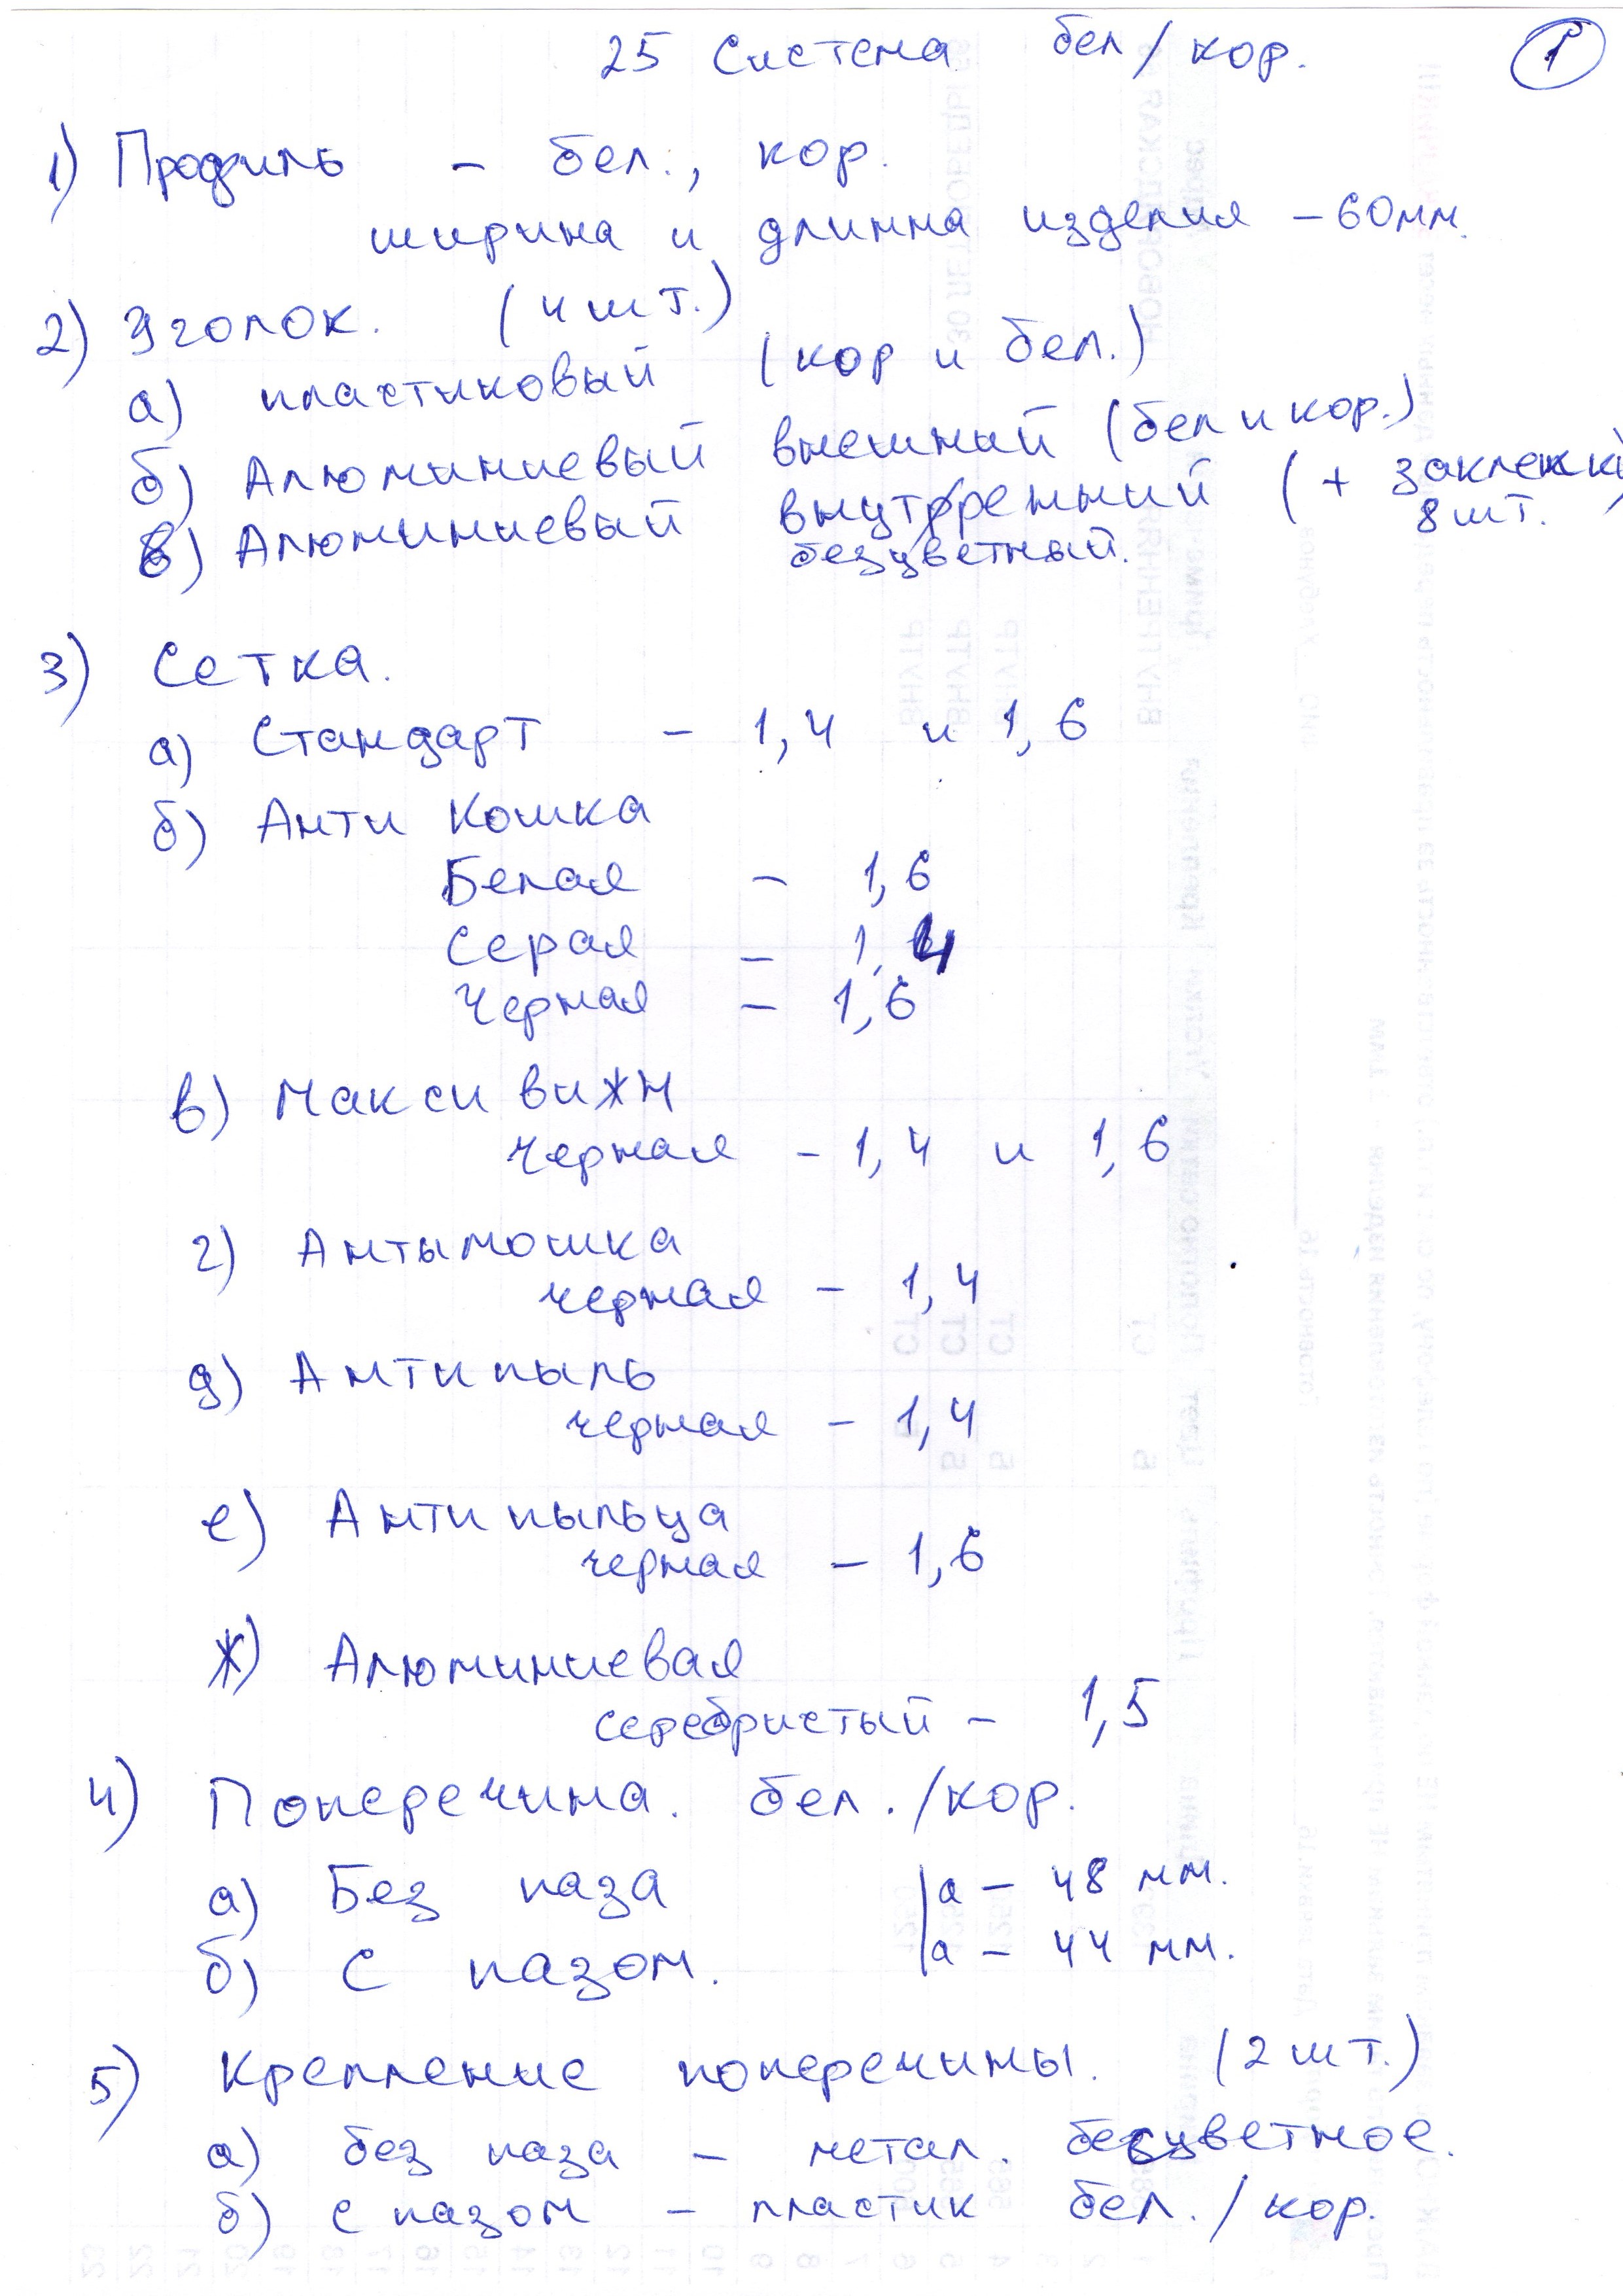 25 Система бел/кор. 1
1) Профиль - бел., кор.
ширина и длинна изделия - 60мм.
2) Уголок. (4 шт.)
а) пластиковый (кор и бел.)
б) Алюминиевый внешний (бел и кор.)
в) Алюминиевый внутренний (+ заклепки
8 шт. )
безцветный.
3) Сетка.
а) Стандарт - 1,4 и 1,6
б) Анти Кошка
Белая - 1,6
Серая - 1,4
Черная - 1,6
в) Макси вижн
черная - 1,4 и 1,6
г) Антымошка
черная - 1,4
д) Анти пыль
черная - 1,4
е) Анти пыльца
черная - 1,6
ж) Алюминиевая
серебристый - 1,5
4) Поперечина. бел./кор.
а) Без паза | а - 48 мм.
б) С пазом. | а - 44 мм.
5) Крепление поперечины. (2 шт.)
а) без паза - метал. бесцветное.
б) с пазом - пластик бел./кор.